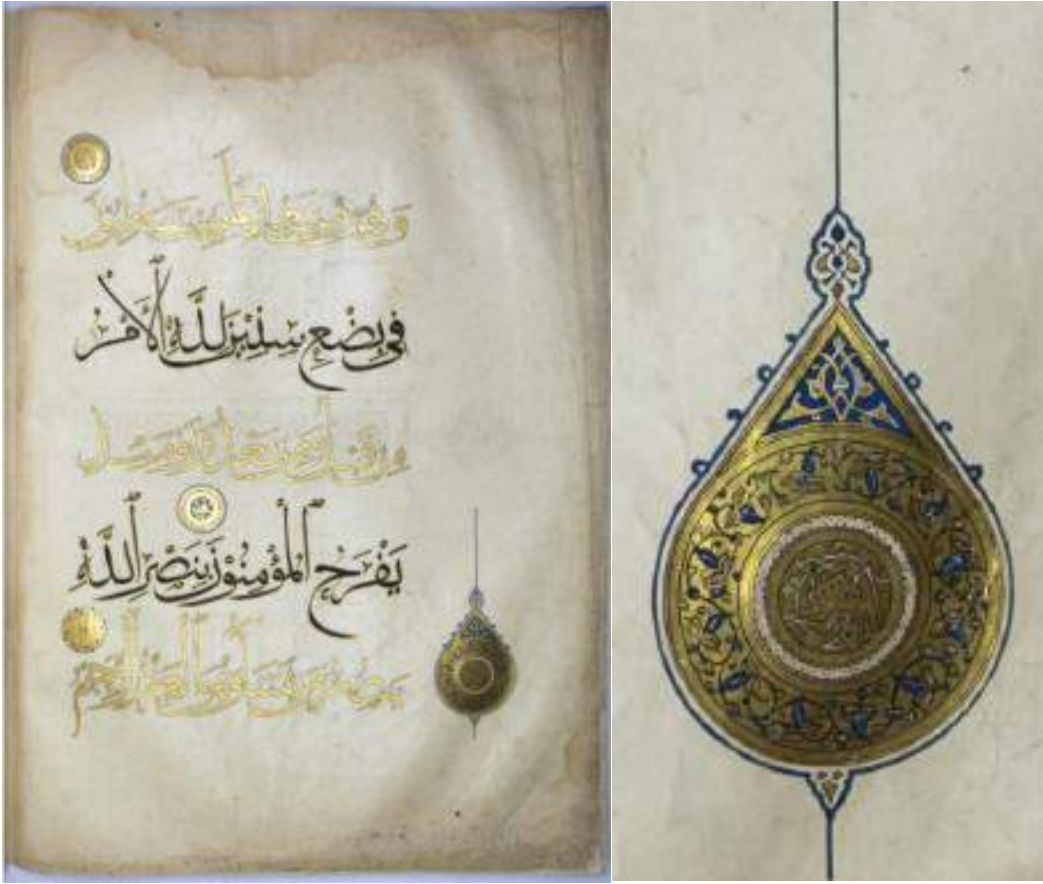 وهم من بعد غلبهم سيغلبون
فِى بِضْعِ سِنِينَ لِلَّهِ الْأَمْرُ
من قبل ومن بعد ويومئذ
يَفْرَحُ الْمُؤْمِنُونَ بِنَصْرِ اللَّهِ
ينصر من يشاء وهو العزيز الرحيم